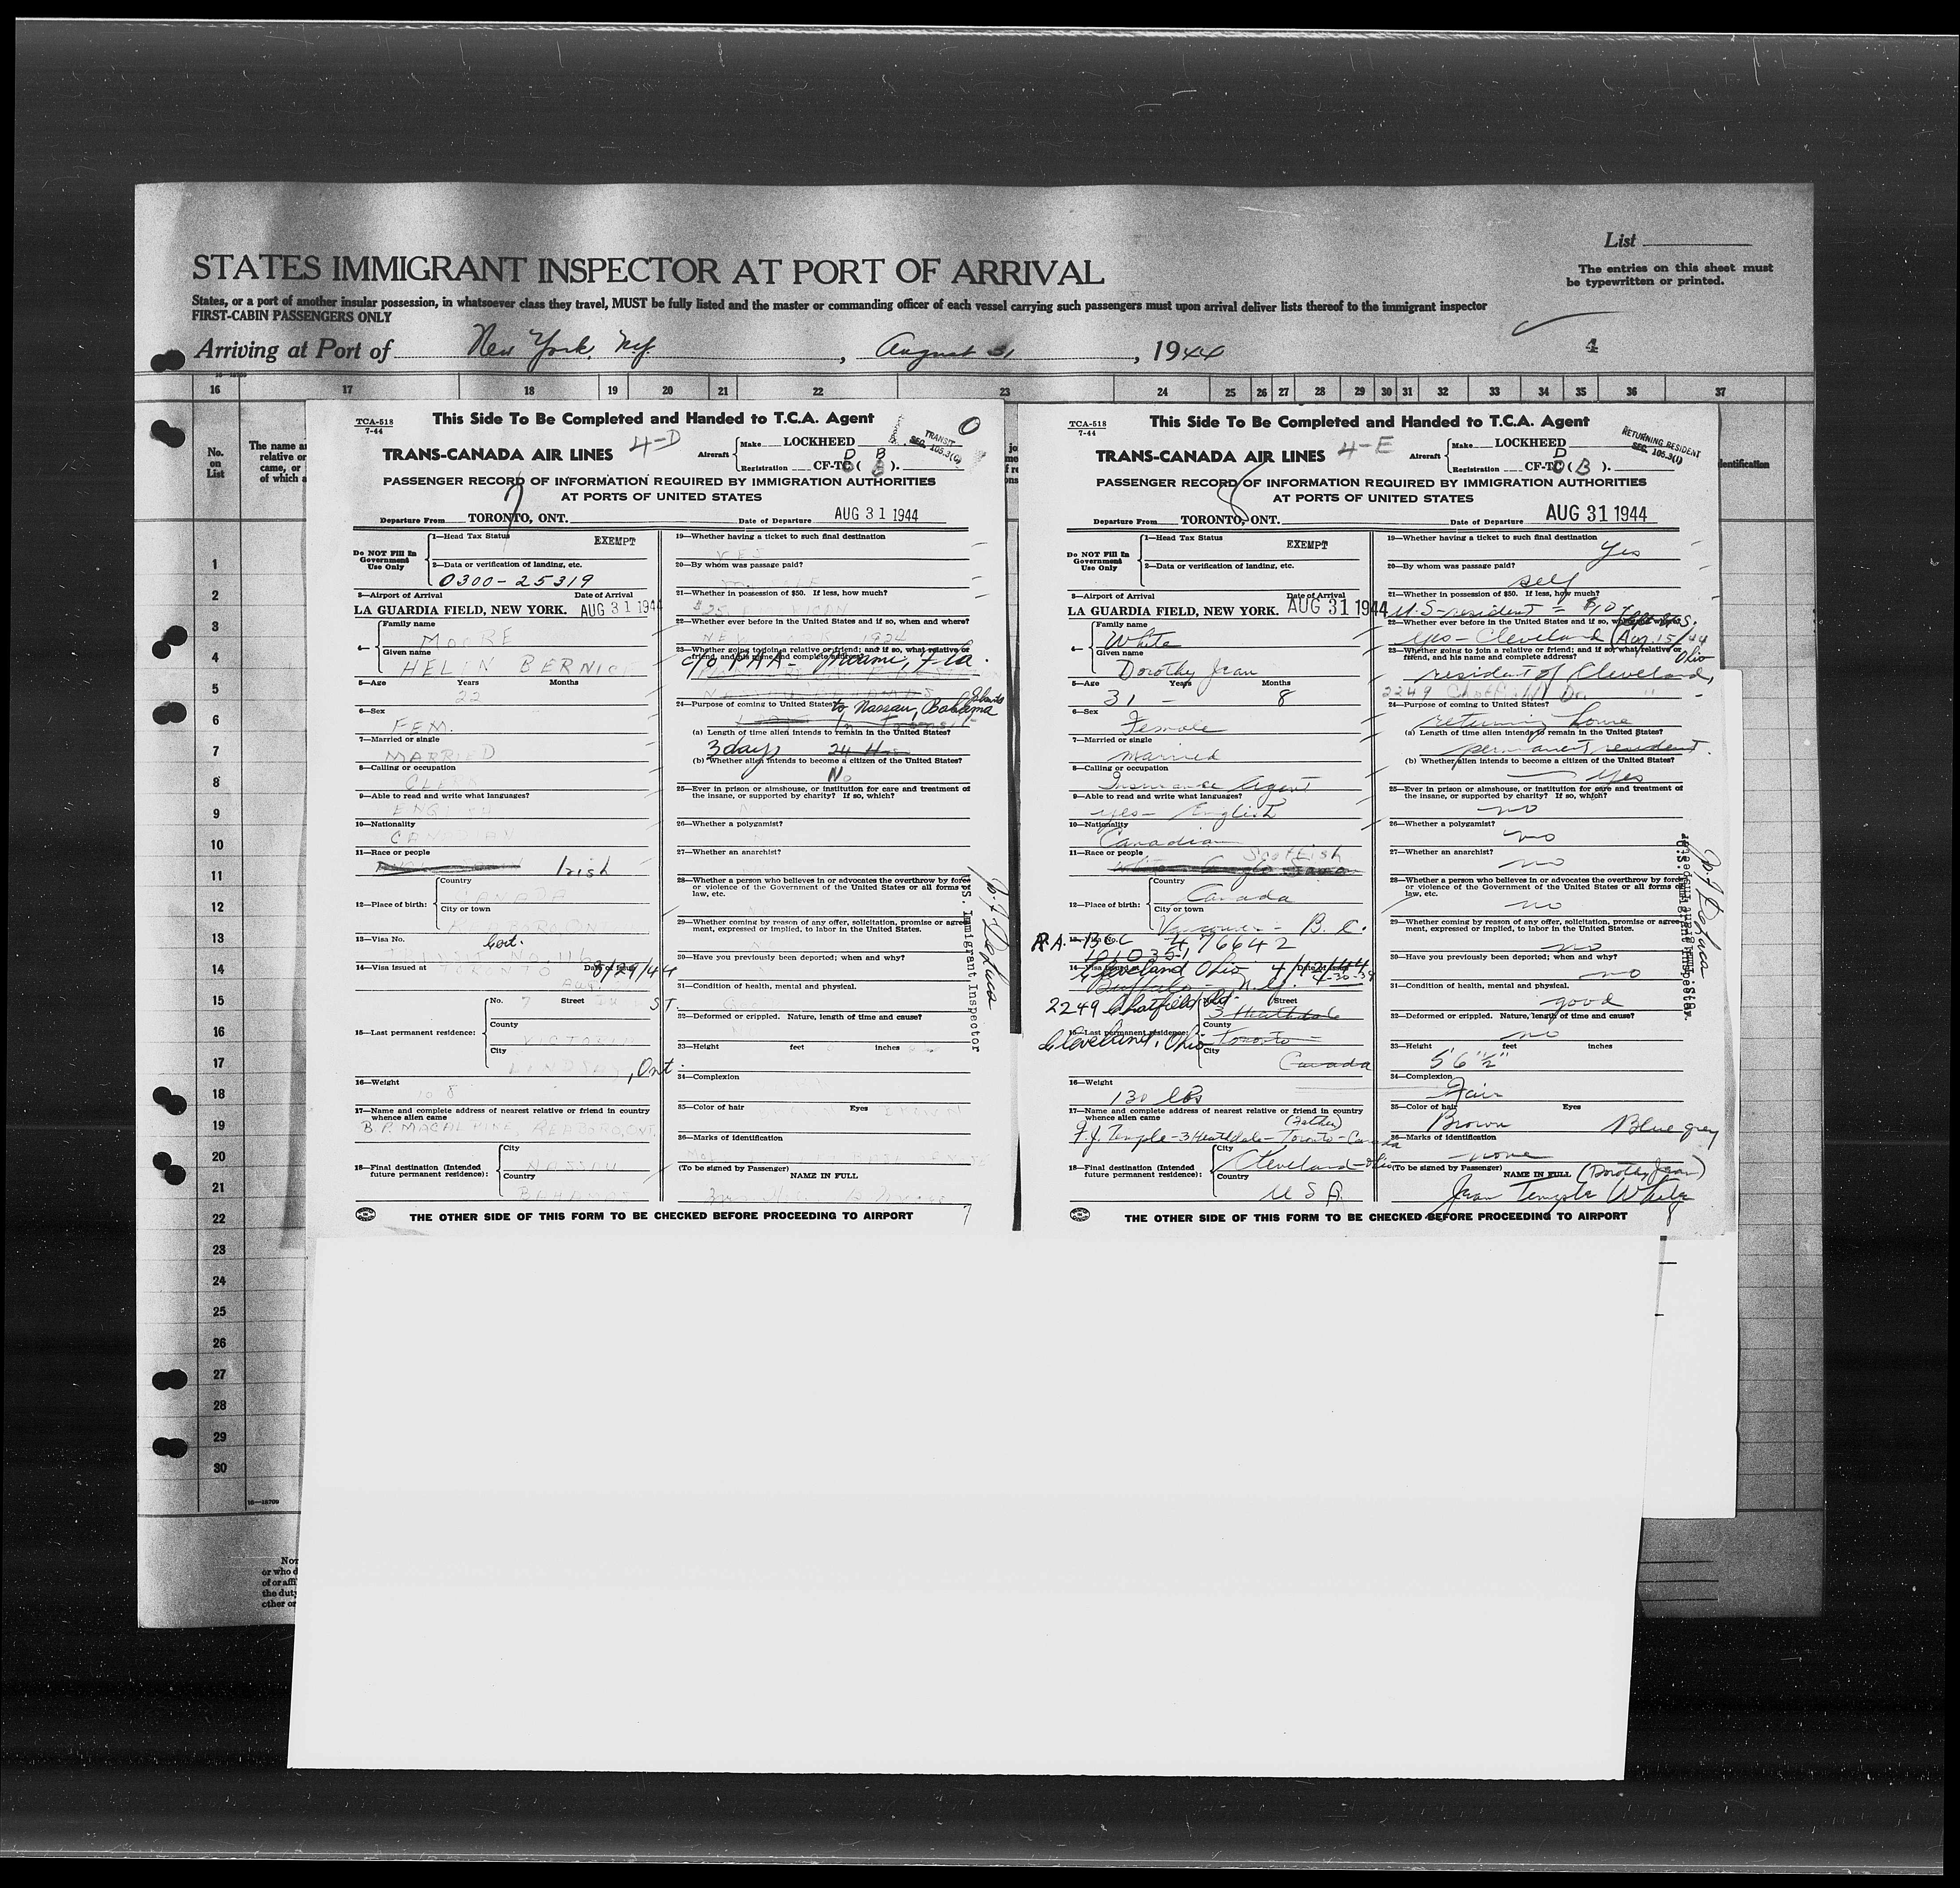 List
The entries on this sheet must
be typewritten or printed.
STATES IMMIGRANT INSPECTOR AT PORT OF ARRIVAL
States, or a port of another insular possession, in whatsoever class they travel, MUST be fully listed and the master or commanding officer of each vessel carrying such passengers must upon arrival deliver lists thereof to the immigrant inspector
FIRST-CABIN PASSENGERS ONLY
Arriving at Port of New York, N.Y., August 31, 1944
4
16 17 18 19 20 21 22 23 24 25 26 27 28 29 30 31 32 33 34 35 36 37
No.
on
List
The name a
relative or
came, or
of which a
dentification
1
2
3
4
5
6
7
8
9
10
11
12
13
14
15
16
17
18
19
20
21
22
23
24
25
26
27
28
29
30
16—18709
Not
or who d
of or affi
the duty
other or
TCA-518
7-44
This Side To Be Completed and Handed to T.C.A. Agent
0
TRANS-CANADA AIR LINES 4-D
Aircraft
Make LOCKHEED
Registration CF-TC ( B ).
D B
TRANSIT
SEC. 105.3(C)
PASSENGER RECORD OF INFORMATION REQUIRED BY IMMIGRATION AUTHORITIES
AT PORTS OF UNITED STATES
7
Departure From TORONTO, ONT. Date of Departure AUG 31 1944
Do NOT Fill In
Government
Use Only
1—Head Tax Status EXEMPT
2—Data or verification of landing, etc.
0300-25319
3—Airport of Arrival Date of Arrival
LA GUARDIA FIELD, NEW YORK. AUG 31 1944
4—
Family name
MOORE
Given name
HELEN BERNICE
5—Age Years Months
22
6—Sex
FEM.
7—Married or single
MARRIED
8—Calling or occupation
9—Able to read and write what languages?
ENGLISH
10—Nationality
CANADIAN
11—Race or people
Irish
12—Place of birth:
Country
CANADA
City or town
13—Visa No.
14—Visa issued at Date of issue
TORONTO 8/29/44
15—Last permanent residence:
No. 7 Street ST.
County
VICTORIA
City
LINDSAY, Ont.
16—Weight
108
17—Name and complete address of nearest relative or friend in country
whence alien came
B.P. MACALPINE, REABORO, ONT.
18—Final destination (Intended
future permanent residence):
City
NASSAU
Country
BAHAMAS
19—Whether having a ticket to such final destination
YES
20—By whom was passage paid?
21—Whether in possession of $50. If less, how much?
$25 AMERICAN
22—Whether ever before in the United States and if so, when and where?
NEW YORK 1924
23—Whether going to join a relative or friend; and if so, what relative or
friend, and his name and complete address?
c/o PAA - Miami, Fla.
NASSAU BAHAMAS
24—Purpose of coming to United States?
to Nassau, Bahama Islands
In Transit
(a) Length of time alien intends to remain in the United States?
3 days 24 Hrs
(b) Whether alien intends to become a citizen of the United States?
No
25—Ever in prison or almshouse, or institution for care and treatment of
the insane, or supported by charity? If so, which?
26—Whether a polygamist?
27—Whether an anarchist?
28—Whether a person who believes in or advocates the overthrow by force
or violence of the Government of the United States or all forms of
law, etc.
29—Whether coming by reason of any offer, solicitation, promise or agree-
ment, expressed or implied, to labor in the United States.
30—Have you previously been deported; when and why?
31—Condition of health, mental and physical.
32—Deformed or crippled. Nature, length of time and cause?
33—Height feet inches
34—Complexion
35—Color of hair Eyes BROWN
36—Marks of identification
(To be signed by Passenger) NAME IN FULL
7
U.S. Immigrant Inspector
THE OTHER SIDE OF THIS FORM TO BE CHECKED BEFORE PROCEEDING TO AIRPORT
TCA-518
7-44
This Side To Be Completed and Handed to T.C.A. Agent
TRANS-CANADA AIR LINES 4-E
Aircraft
Make LOCKHEED
Registration CF-TC ( B ).
D
RETURNING RESIDENT
SEC. 105.3(1)
PASSENGER RECORD OF INFORMATION REQUIRED BY IMMIGRATION AUTHORITIES
AT PORTS OF UNITED STATES
8
Departure From TORONTO, ONT. Date of Departure AUG 31 1944
Do NOT Fill In
Government
Use Only
1—Head Tax Status EXEMPT
2—Data or verification of landing, etc.
3—Airport of Arrival Date of Arrival
LA GUARDIA FIELD, NEW YORK. AUG 31 1944
4—
Family name
White
Given name
Dorothy Jean
5—Age Years Months
31 - 8
6—Sex
Female
7—Married or single
Married
8—Calling or occupation
Insurance Agent
9—Able to read and write what languages?
yes - English
10—Nationality
Canadian
11—Race or people
Scottish
12—Place of birth:
Country
Canada
City or town
Vancouver - B.C.
13—Visa No.
476642
14—Visa issued at Date of issue
Cleveland Ohio
Buffalo - N.Y. 4-30-38
2249 Chatfield Rd.
Cleveland, Ohio
15—Last permanent residence:
Street
3 Heathdale
County
Toronto
City
Canada
16—Weight
130 lbs
17—Name and complete address of nearest relative or friend in country
whence alien came
(Father)
F.J. Temple - 3 Heathdale - Toronto - Canada
18—Final destination (Intended
future permanent residence):
City
Cleveland - Ohio
Country
U S A.
19—Whether having a ticket to such final destination
Yes
20—By whom was passage paid?
self
21—Whether in possession of $50. If less, how much?
U.S. resident = $10
22—Whether ever before in the United States and if so, when and where?
yes - Cleveland (Aug. 15/44
23—Whether going to join a relative or friend; and if so, what relative or
friend, and his name and complete address?
Ohio
resident of Cleveland,
2249 Chatfield Dr. " "
24—Purpose of coming to United States?
returning home
(a) Length of time alien intends to remain in the United States?
permanent resident.
(b) Whether alien intends to become a citizen of the United States?
yes
25—Ever in prison or almshouse, or institution for care and treatment of
the insane, or supported by charity? If so, which?
no
26—Whether a polygamist?
no
27—Whether an anarchist?
no
28—Whether a person who believes in or advocates the overthrow by force
or violence of the Government of the United States or all forms of
law, etc.
no
29—Whether coming by reason of any offer, solicitation, promise or agree-
ment, expressed or implied, to labor in the United States.
no
30—Have you previously been deported; when and why?
no
31—Condition of health, mental and physical.
good
32—Deformed or crippled. Nature, length of time and cause?
no
33—Height feet inches
5' 6 ½"
34—Complexion
Fair
35—Color of hair Eyes
Brown Blue grey
36—Marks of identification
none
(To be signed by Passenger) NAME IN FULL (Dorothy Jean)
Jean Temple White
8
THE OTHER SIDE OF THIS FORM TO BE CHECKED BEFORE PROCEEDING TO AIRPORT